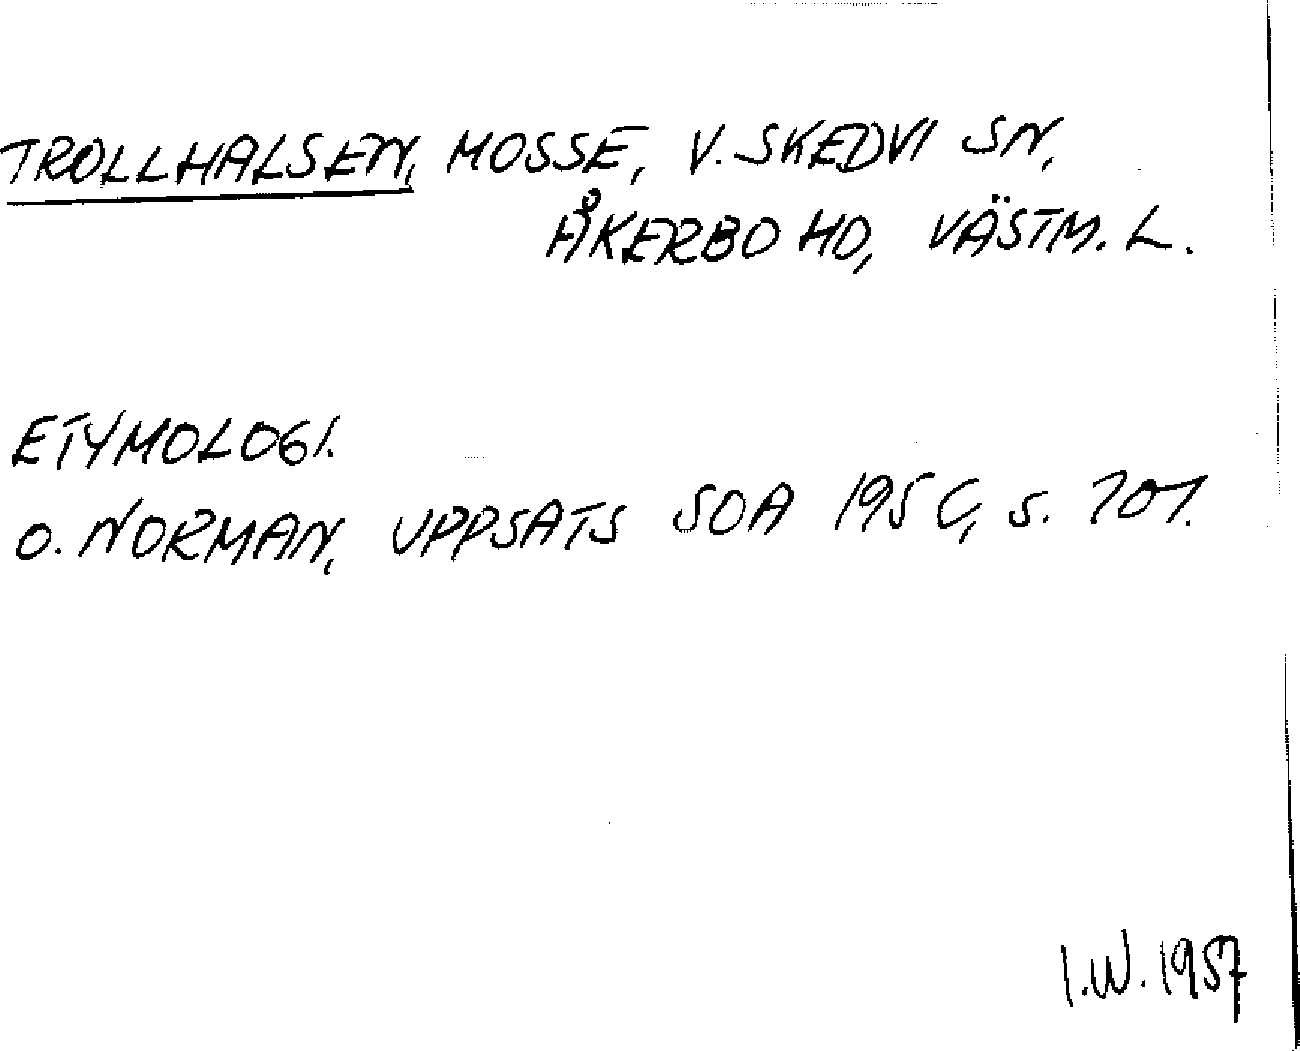 TROLLHALSEN, MOSSE, V. SKEDVI SN,
ÅKERBO HD, VÄSTM. L.
ETYMOLOGI.
O. NORMAN, UPPSATS SOA s.
I.W. 1957